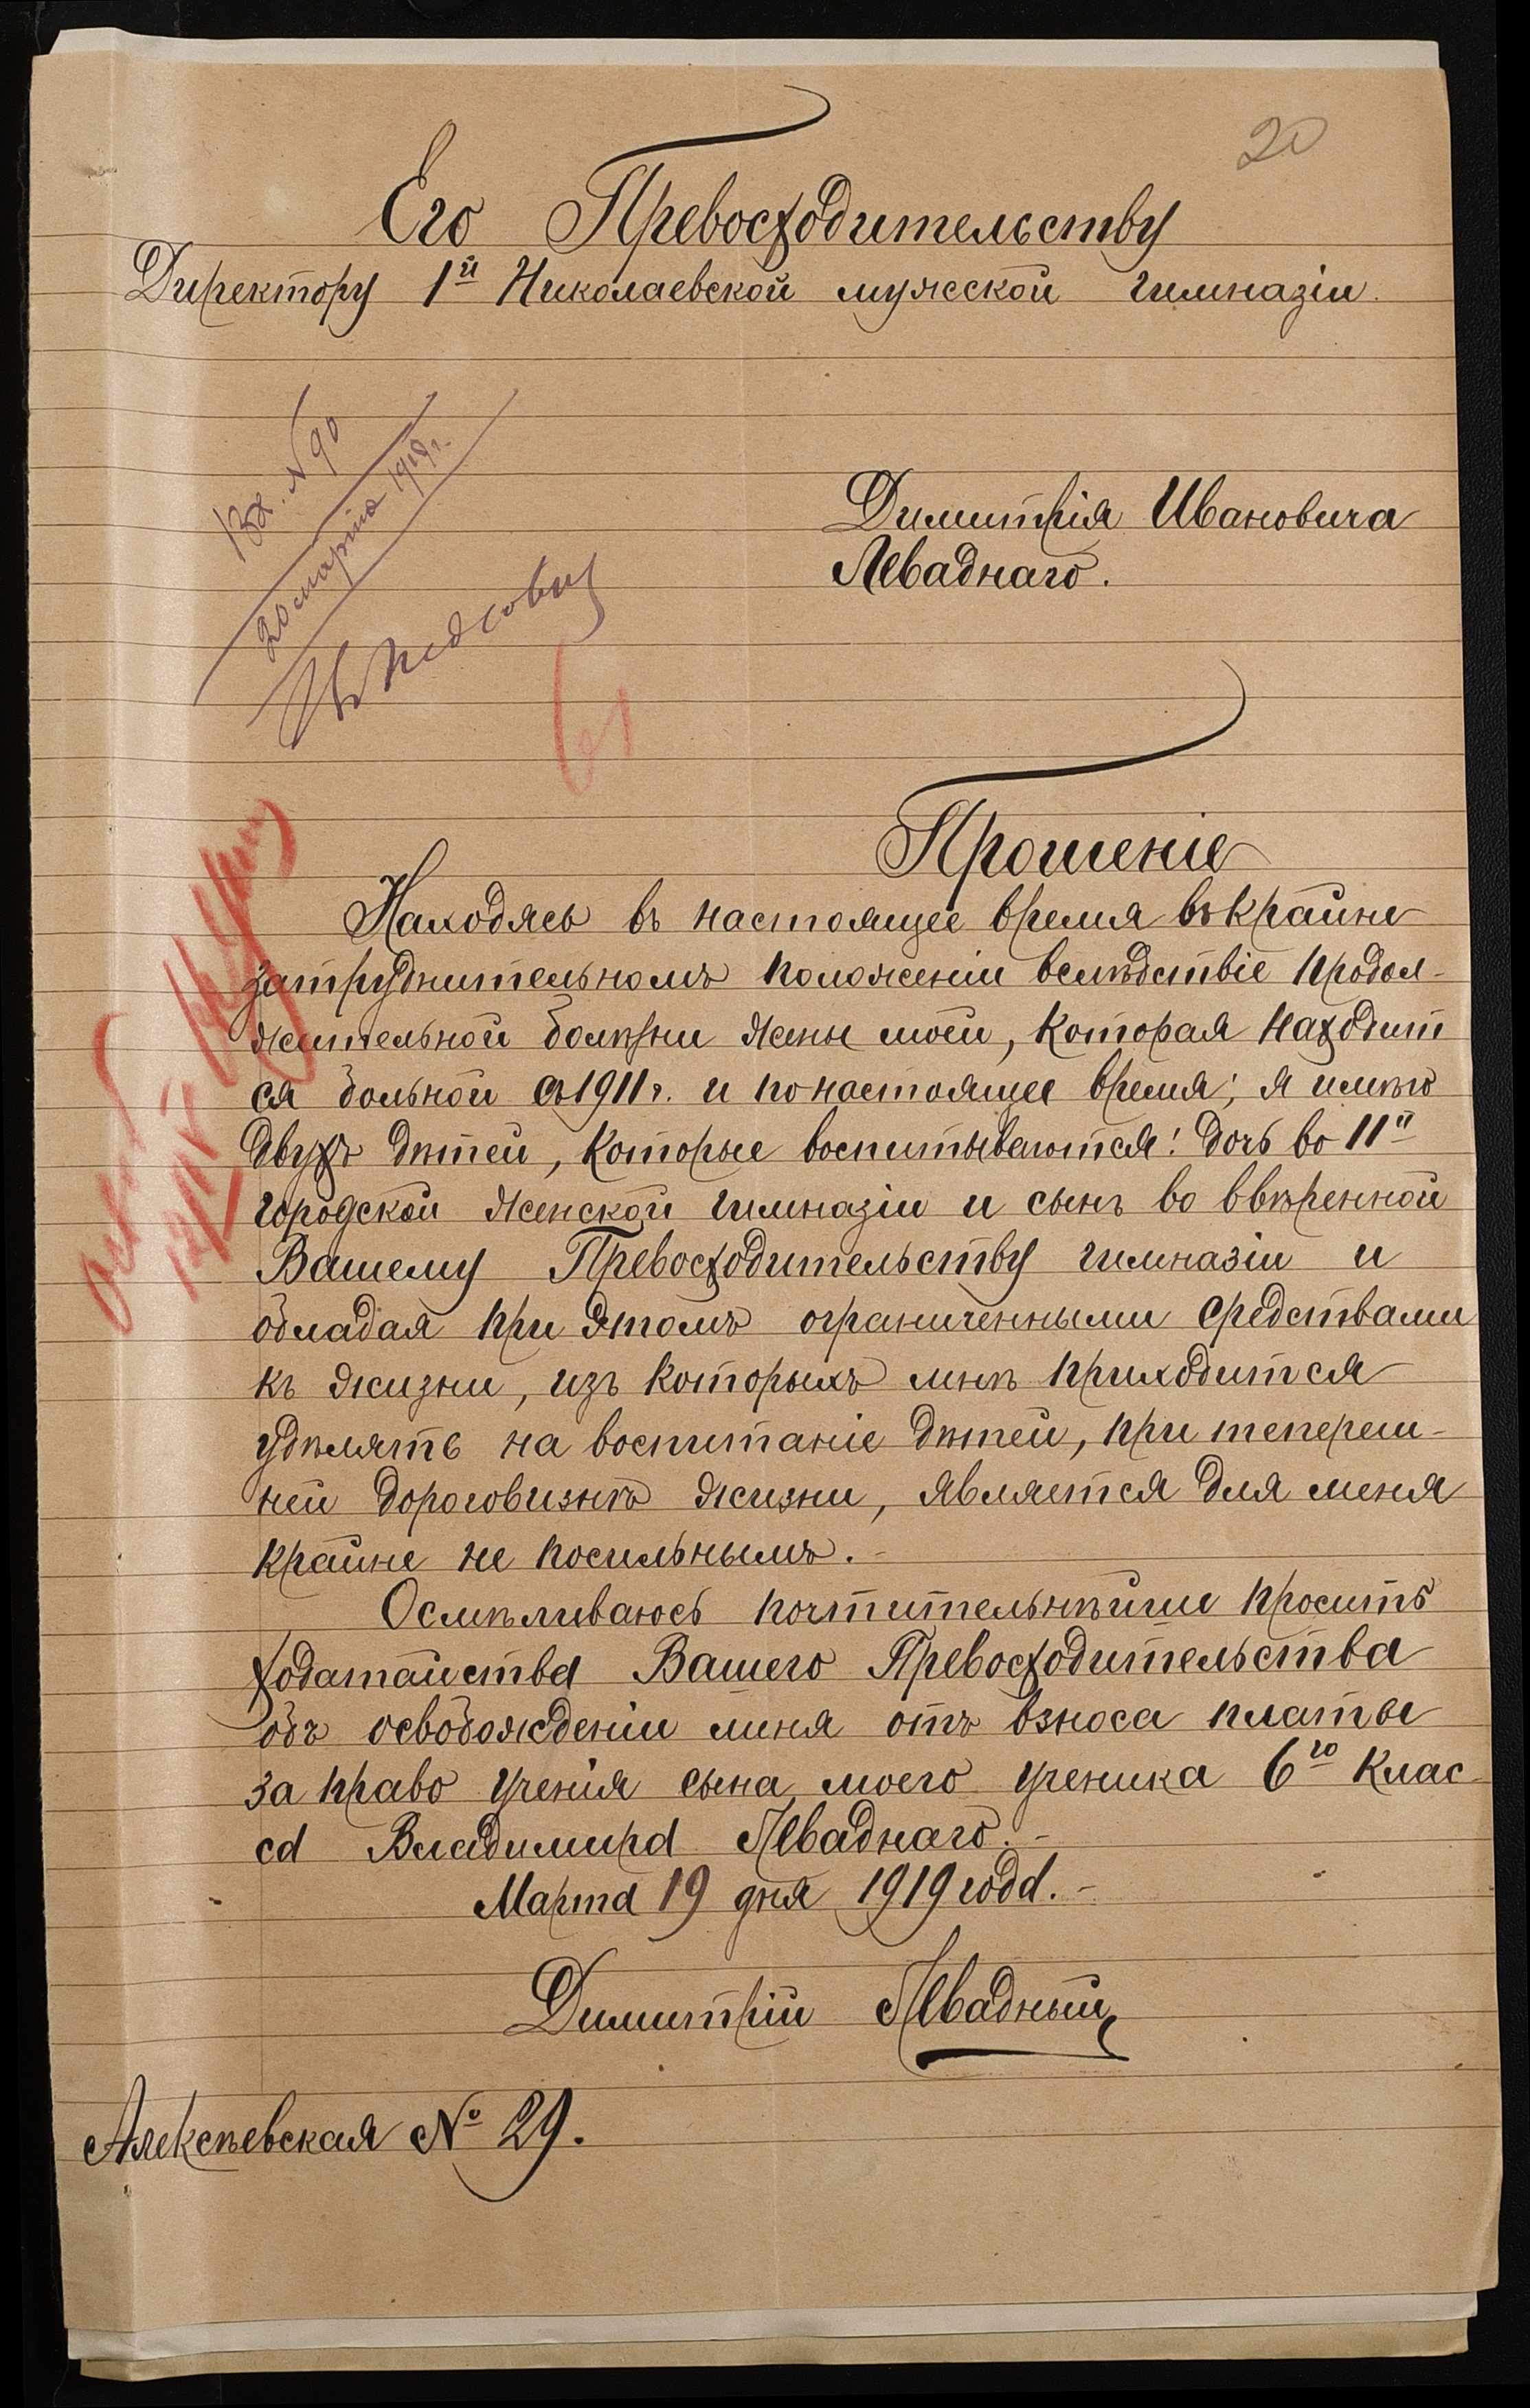 20
Его Превосходительству
Директору 1й Николаевской мужской гимназіи.
Вх. N 90
20 марта 1919 г.
Въ педсовѣт
Димитрія Ивановича
Леваднаго.
Прошеніе
Находясь въ настоящее время въ крайне
затруднительномъ положеніи вслѣдствіе продол-
жительной болѣзни жены моей, которая находит
ся больной съ 1911 г. и по настоящее время; я имѣю
двухъ дѣтей, которые воспитываются: дочь во 11й
городской женской гимназіи и сынъ во ввѣренной
Вашему Превосходительству гимназіи и
обладая при этомъ ограниченными средствами
къ жизни, изъ которыхъ мнѣ приходится
удѣлять на воспитаніе дѣтей, при тепереш-
ней дороговизнѣ жизни, является для меня
крайне не посильнымъ.-
Осмѣливаюсь почтительнѣйше просить
ходатайства Вашего Превосходительства
объ освобожденіи меня отъ взноса платы
за право ученія сына моего ученика 6го клас
са Владимира Леваднаго.-
Марта 19 дня 1919 года.-
Димитрій Левадный
Алексѣевская № 29.